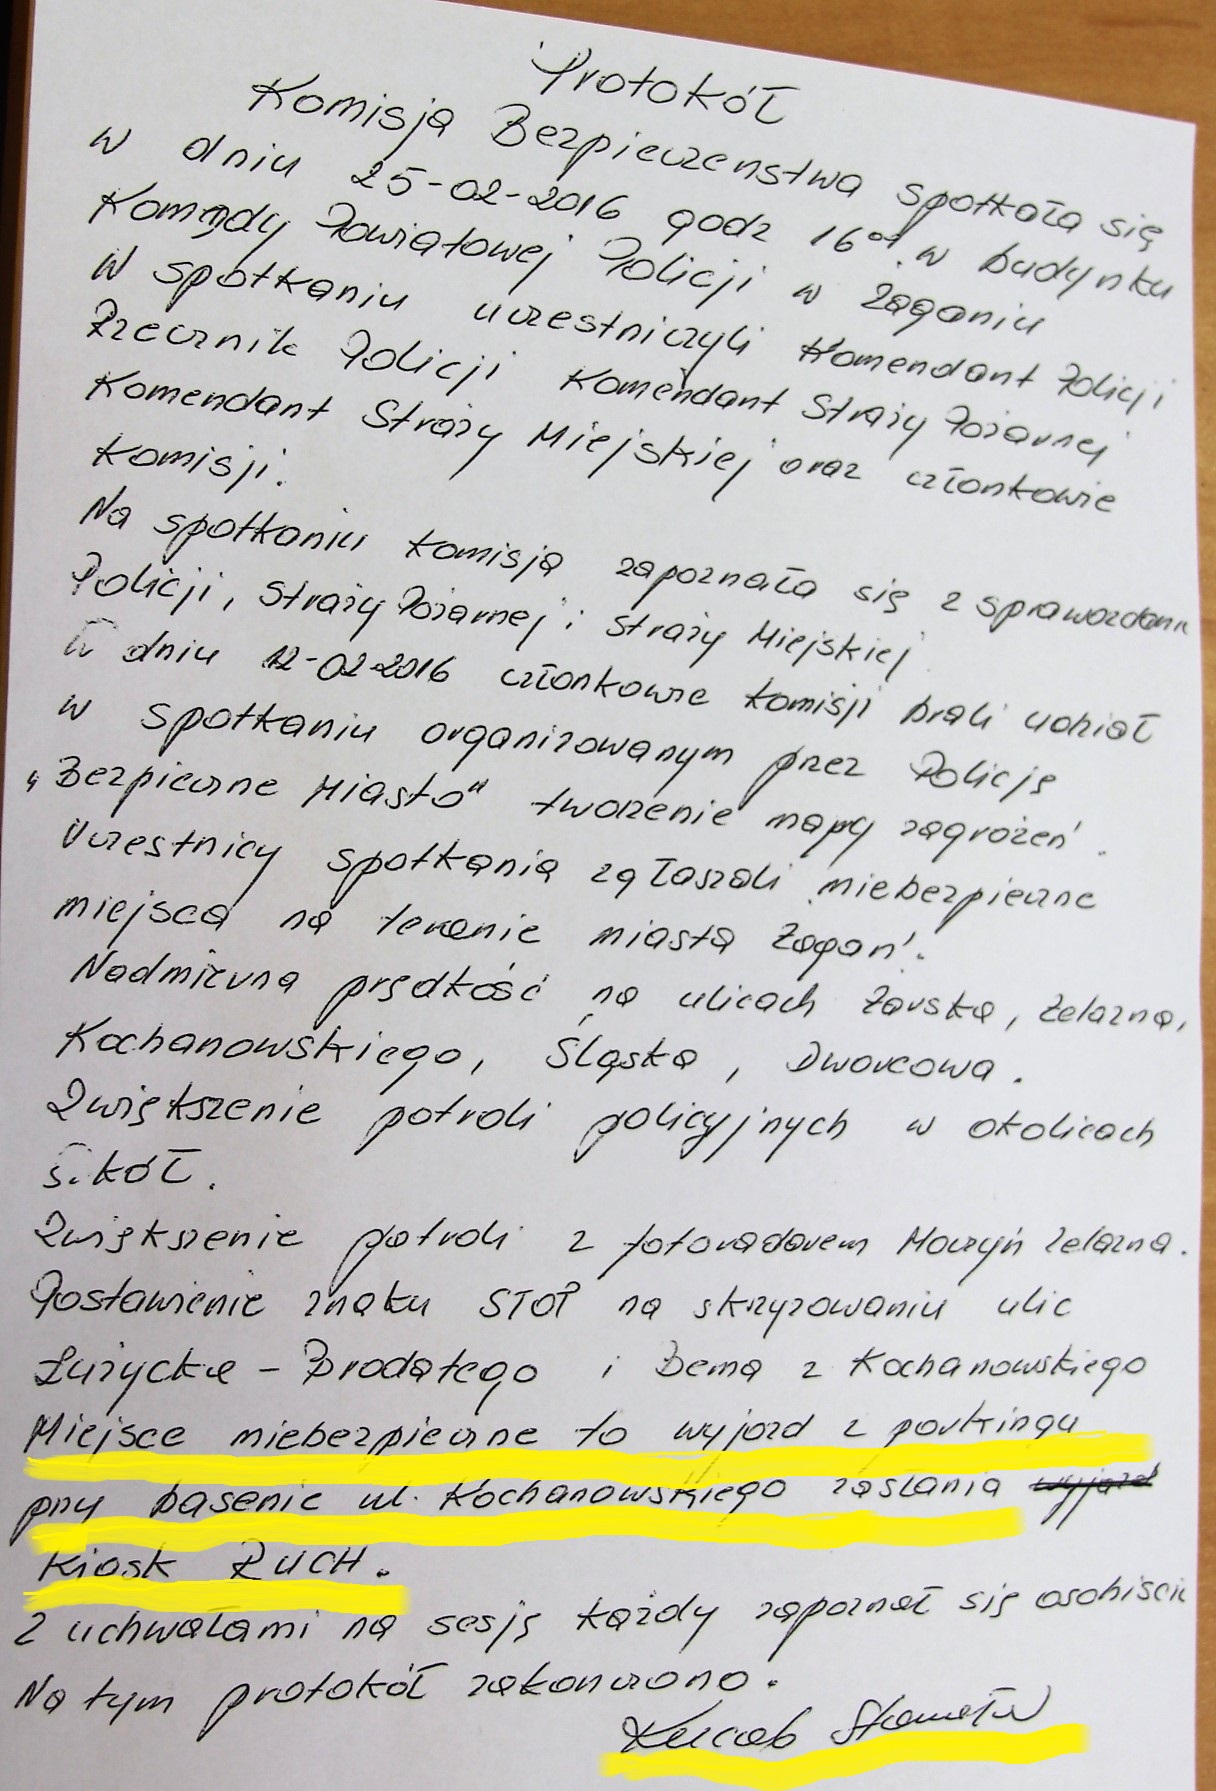 Protokół
Komisja Bezpieczenstwa spotkała się
w dniu 25-02-2016 godz 16⁰⁰ w budynku
Komendy Powiatowej Policji w Żaganiu
W spotkaniu uczestniczyli Komendant Policji
Rzecznik Policji Komendant Straży Pożarnej
Komendant Straży Miejskiej oraz członkowie
Komisji.
Na spotkaniu Komisja zapoznała się z sprawozdaniu
Policji, Straży Pożarnej i Straży Miejskiej
W dniu 12-02-2016 członkowie Komisji brali udział
w spotkaniu organizowanym przez Policję
"Bezpieczne Miasto" tworzenie mapy zagrożeń.
Uczestnicy spotkania zgłaszali niebezpieczne
miejsca na terenie miasta Żagań.
Nadmierna prędkość na ulicach Żarska, Żelazna,
Kochanowskiego, Śląska, Dworcowa.
Zwiększenie patroli policyjnych w okolicach
szkół.
Zwiększenie patroli z fotoradarem Moczyń Żelazna.
Postawienie znaku STOP na skrzyżowaniu ulic
Łużycka - Brodatego i Bema z Kochanowskiego
Miejsce niebezpieczne to wyjazd z parkingu
przy basenie ul. Kochanowskiego zasłania wyjazd
Kiosk RUCH.
Z uchwałami na sesję każdy zapoznał się osobiście
Na tym protokół zakończono.